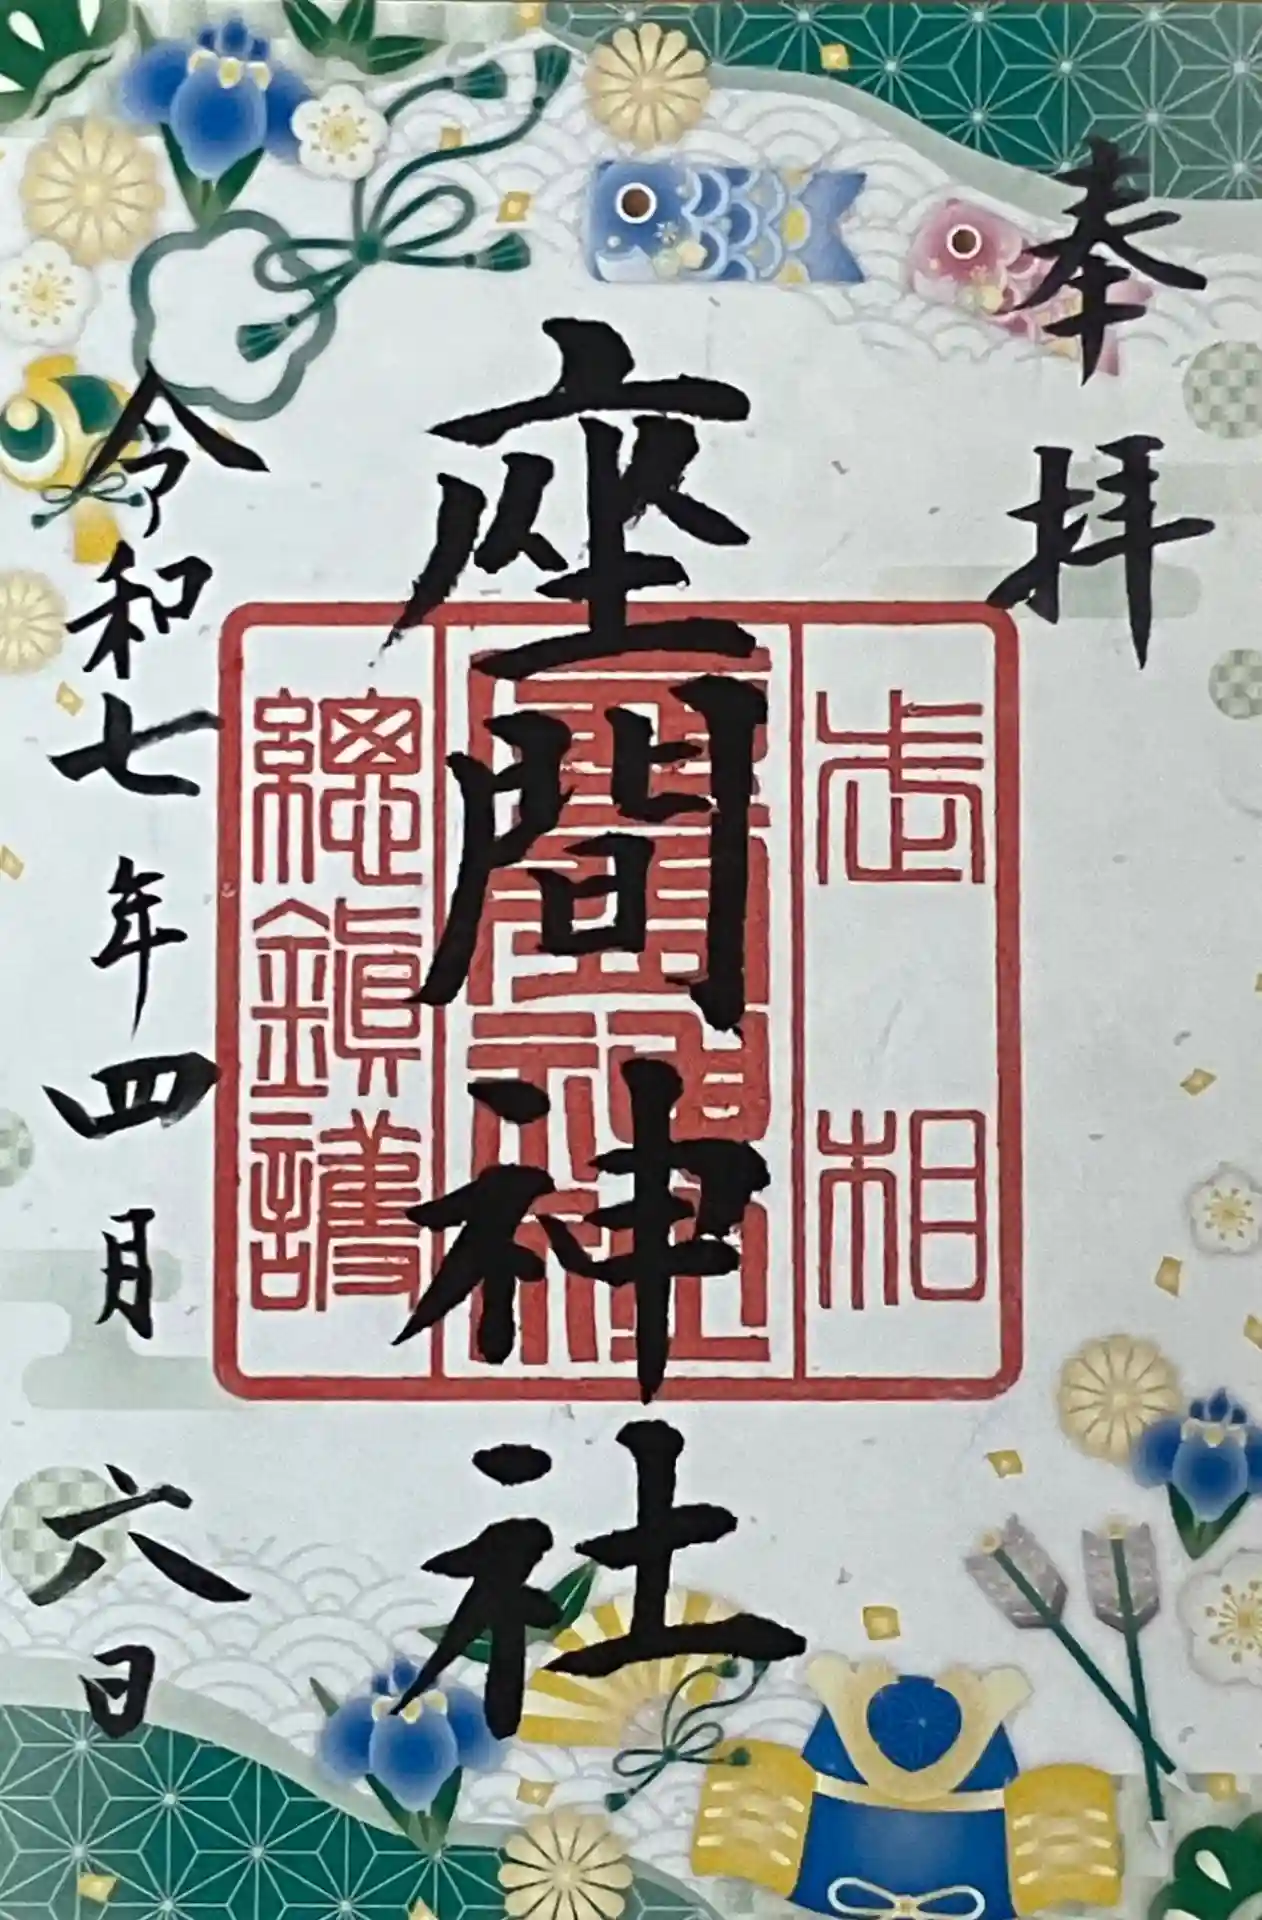 奉拝
武相
座間神社
座間神社
總鎮護
令和七年四月六日